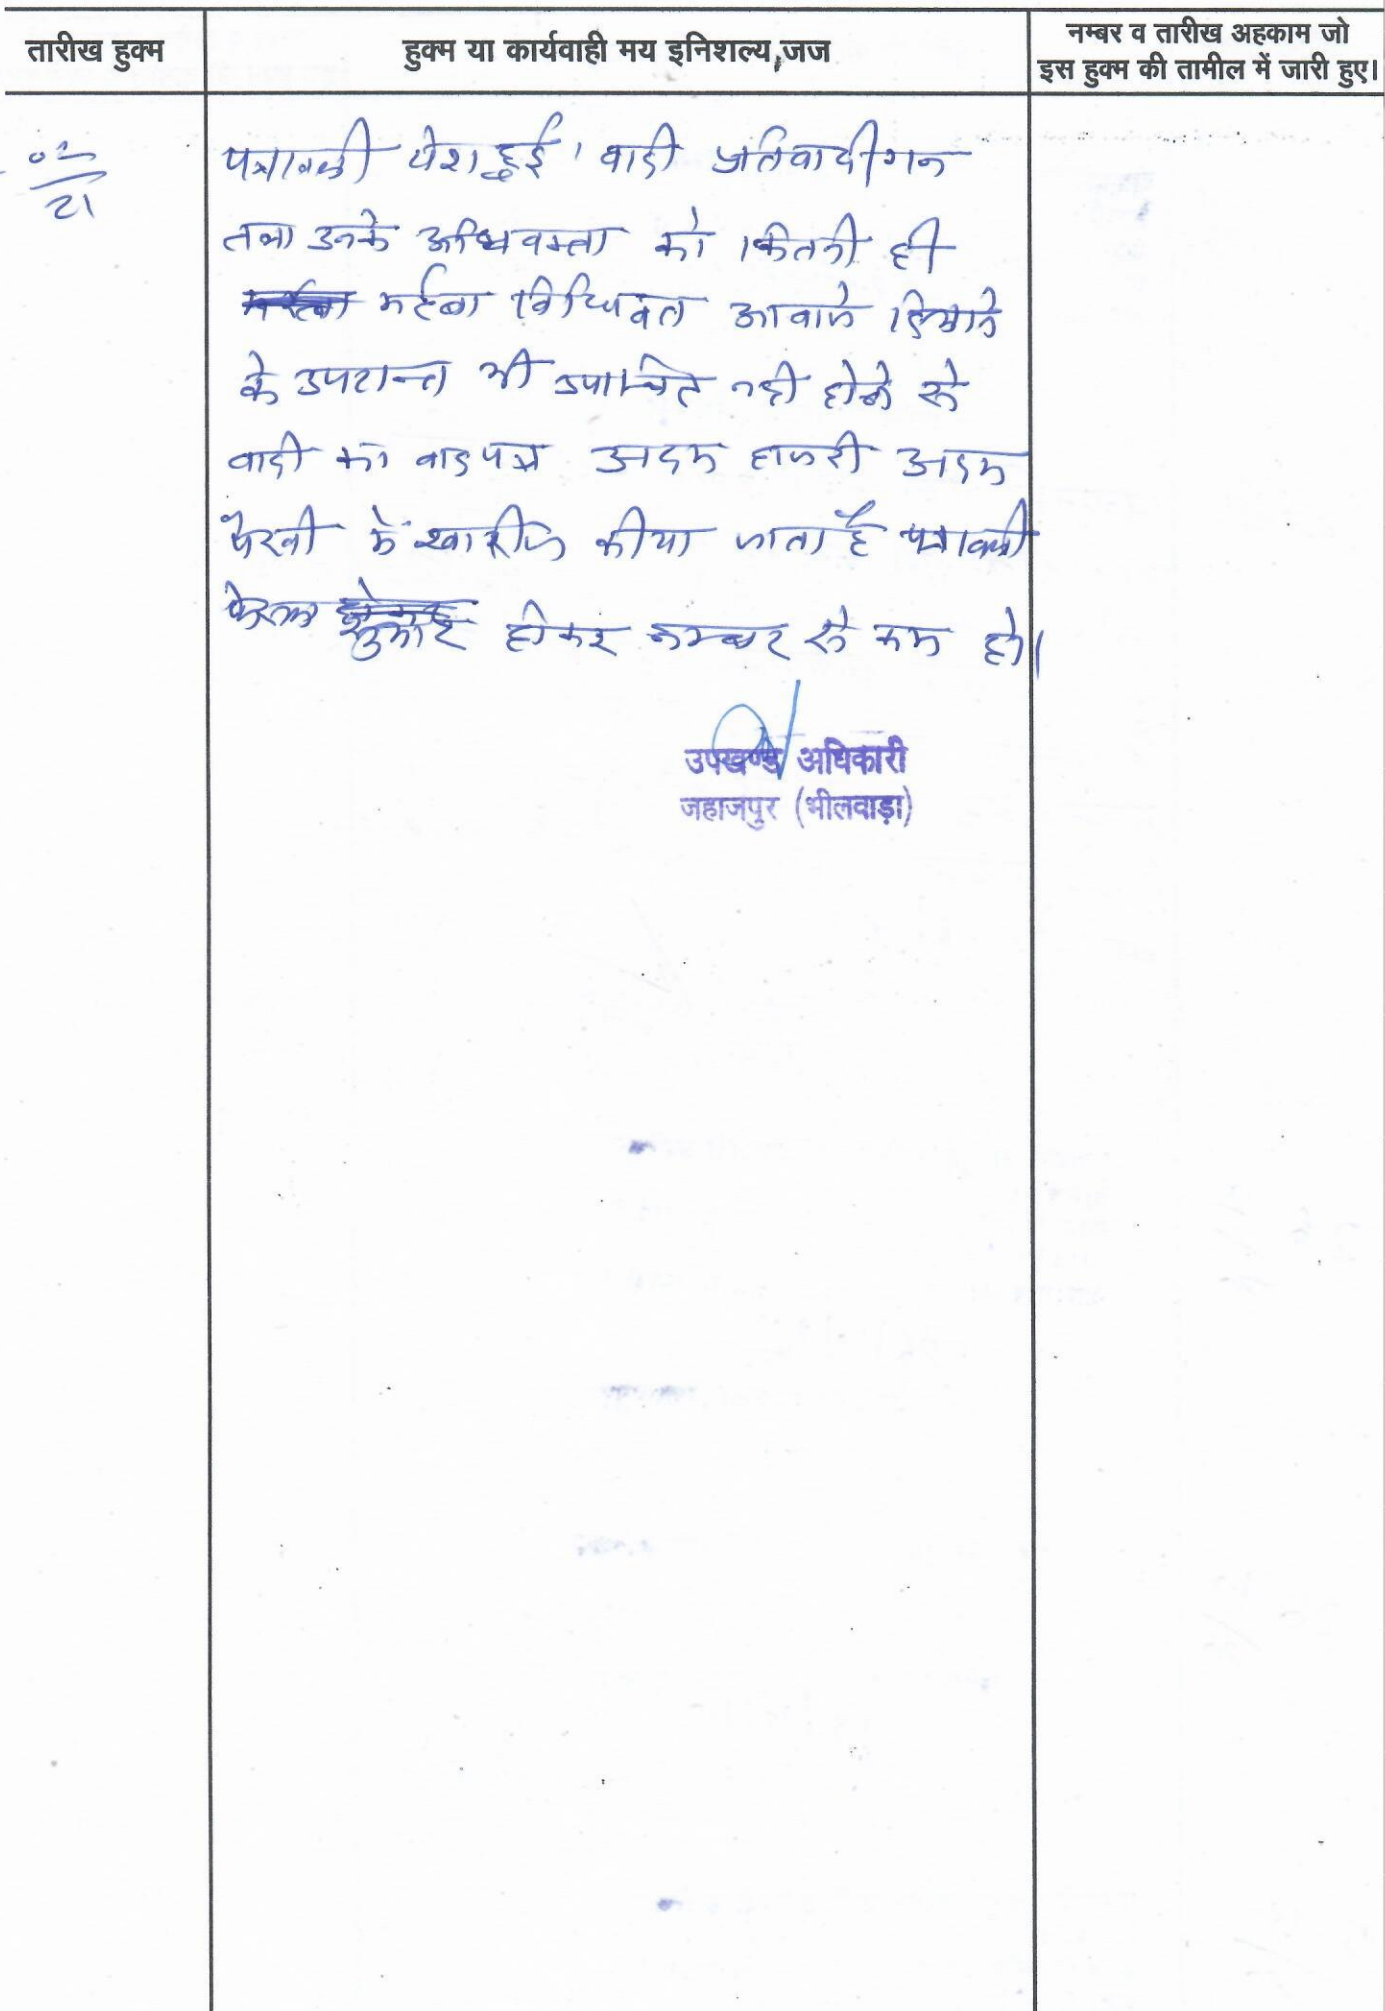 तारीख हुक्म
हुक्म या कार्यवाही मय इनिशल्य जज
नम्बर व तारीख अहकाम जो
इस हुक्म की तामील में जारी हुए।
21
पत्रावली पेश हुई। वादी प्रतिवादीगन
तथा उनके अधिवक्ता को कितनी ही
मर्तबा विधिवत आवाजे दिलाने
के उपरान्त भी उपस्थित नही होने से
वादी का वादपत्र अदम हाजरी अदम
पेरवी मे खारीज कीया जाता है पत्रावली
फेसल सुमार होकर नम्बर से कम हो।
उपखण्ड अधिकारी
जहाजपुर (भीलवाड़ा)